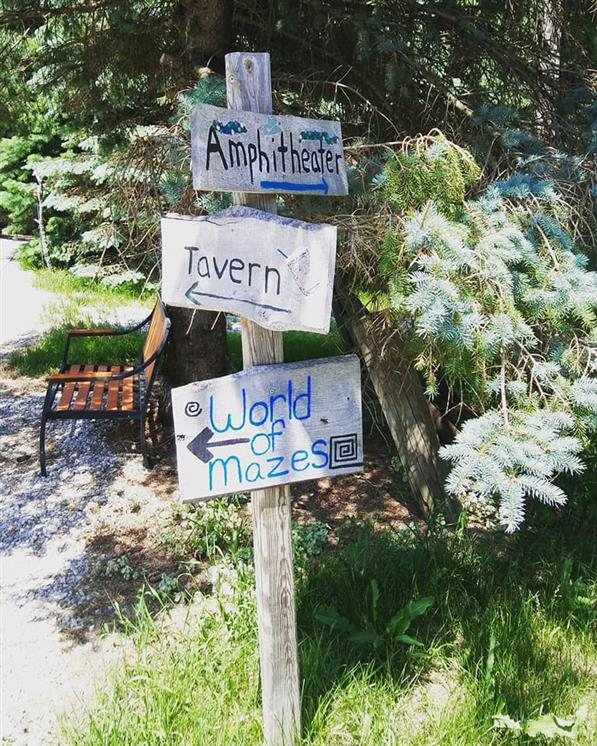 Amphitheater
Tavern
World
of
mazes